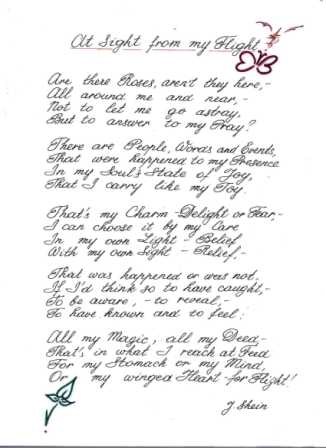 At Sight from my Flight
Are there Roses, aren't they here,-
All around me and near,-
Not to let me go astray,
But to answer to my Pray?
There are People, Words and Events,
That were happened to my Presence
In my Soul's State of Joy,
That I carry like my Toy.
That's my Charm - Delight or Fear,-
I can choose it by my Care
In my own Light - Belief
With my own Sight - Relief.-
That was happened or was not,
If I'd think so to have caught,-
To be aware, - to reveal,-
To have known and to feel:
All my Magic, all my Deed,-
That's, in what I reach at Feed
For my Stomach or my Mind,
Or my winged Heart - for Flight!
J. Shein